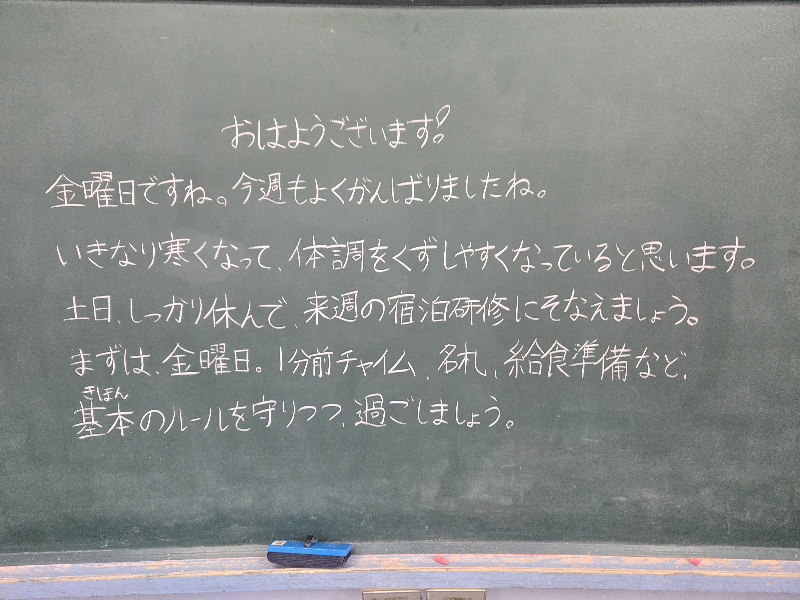 おはようございます!
金曜日ですね。今週もよくがんばりましたね。
いきなり寒くなって、体調をくずしやすくなっていると思います。
土日、しっかり休んで、来週の宿泊研修にそなえましょう。
まずは、金曜日。1分前チャイム、名札、給食準備など、
きほん
基本のルールを守りつつ、過ごしましょう。